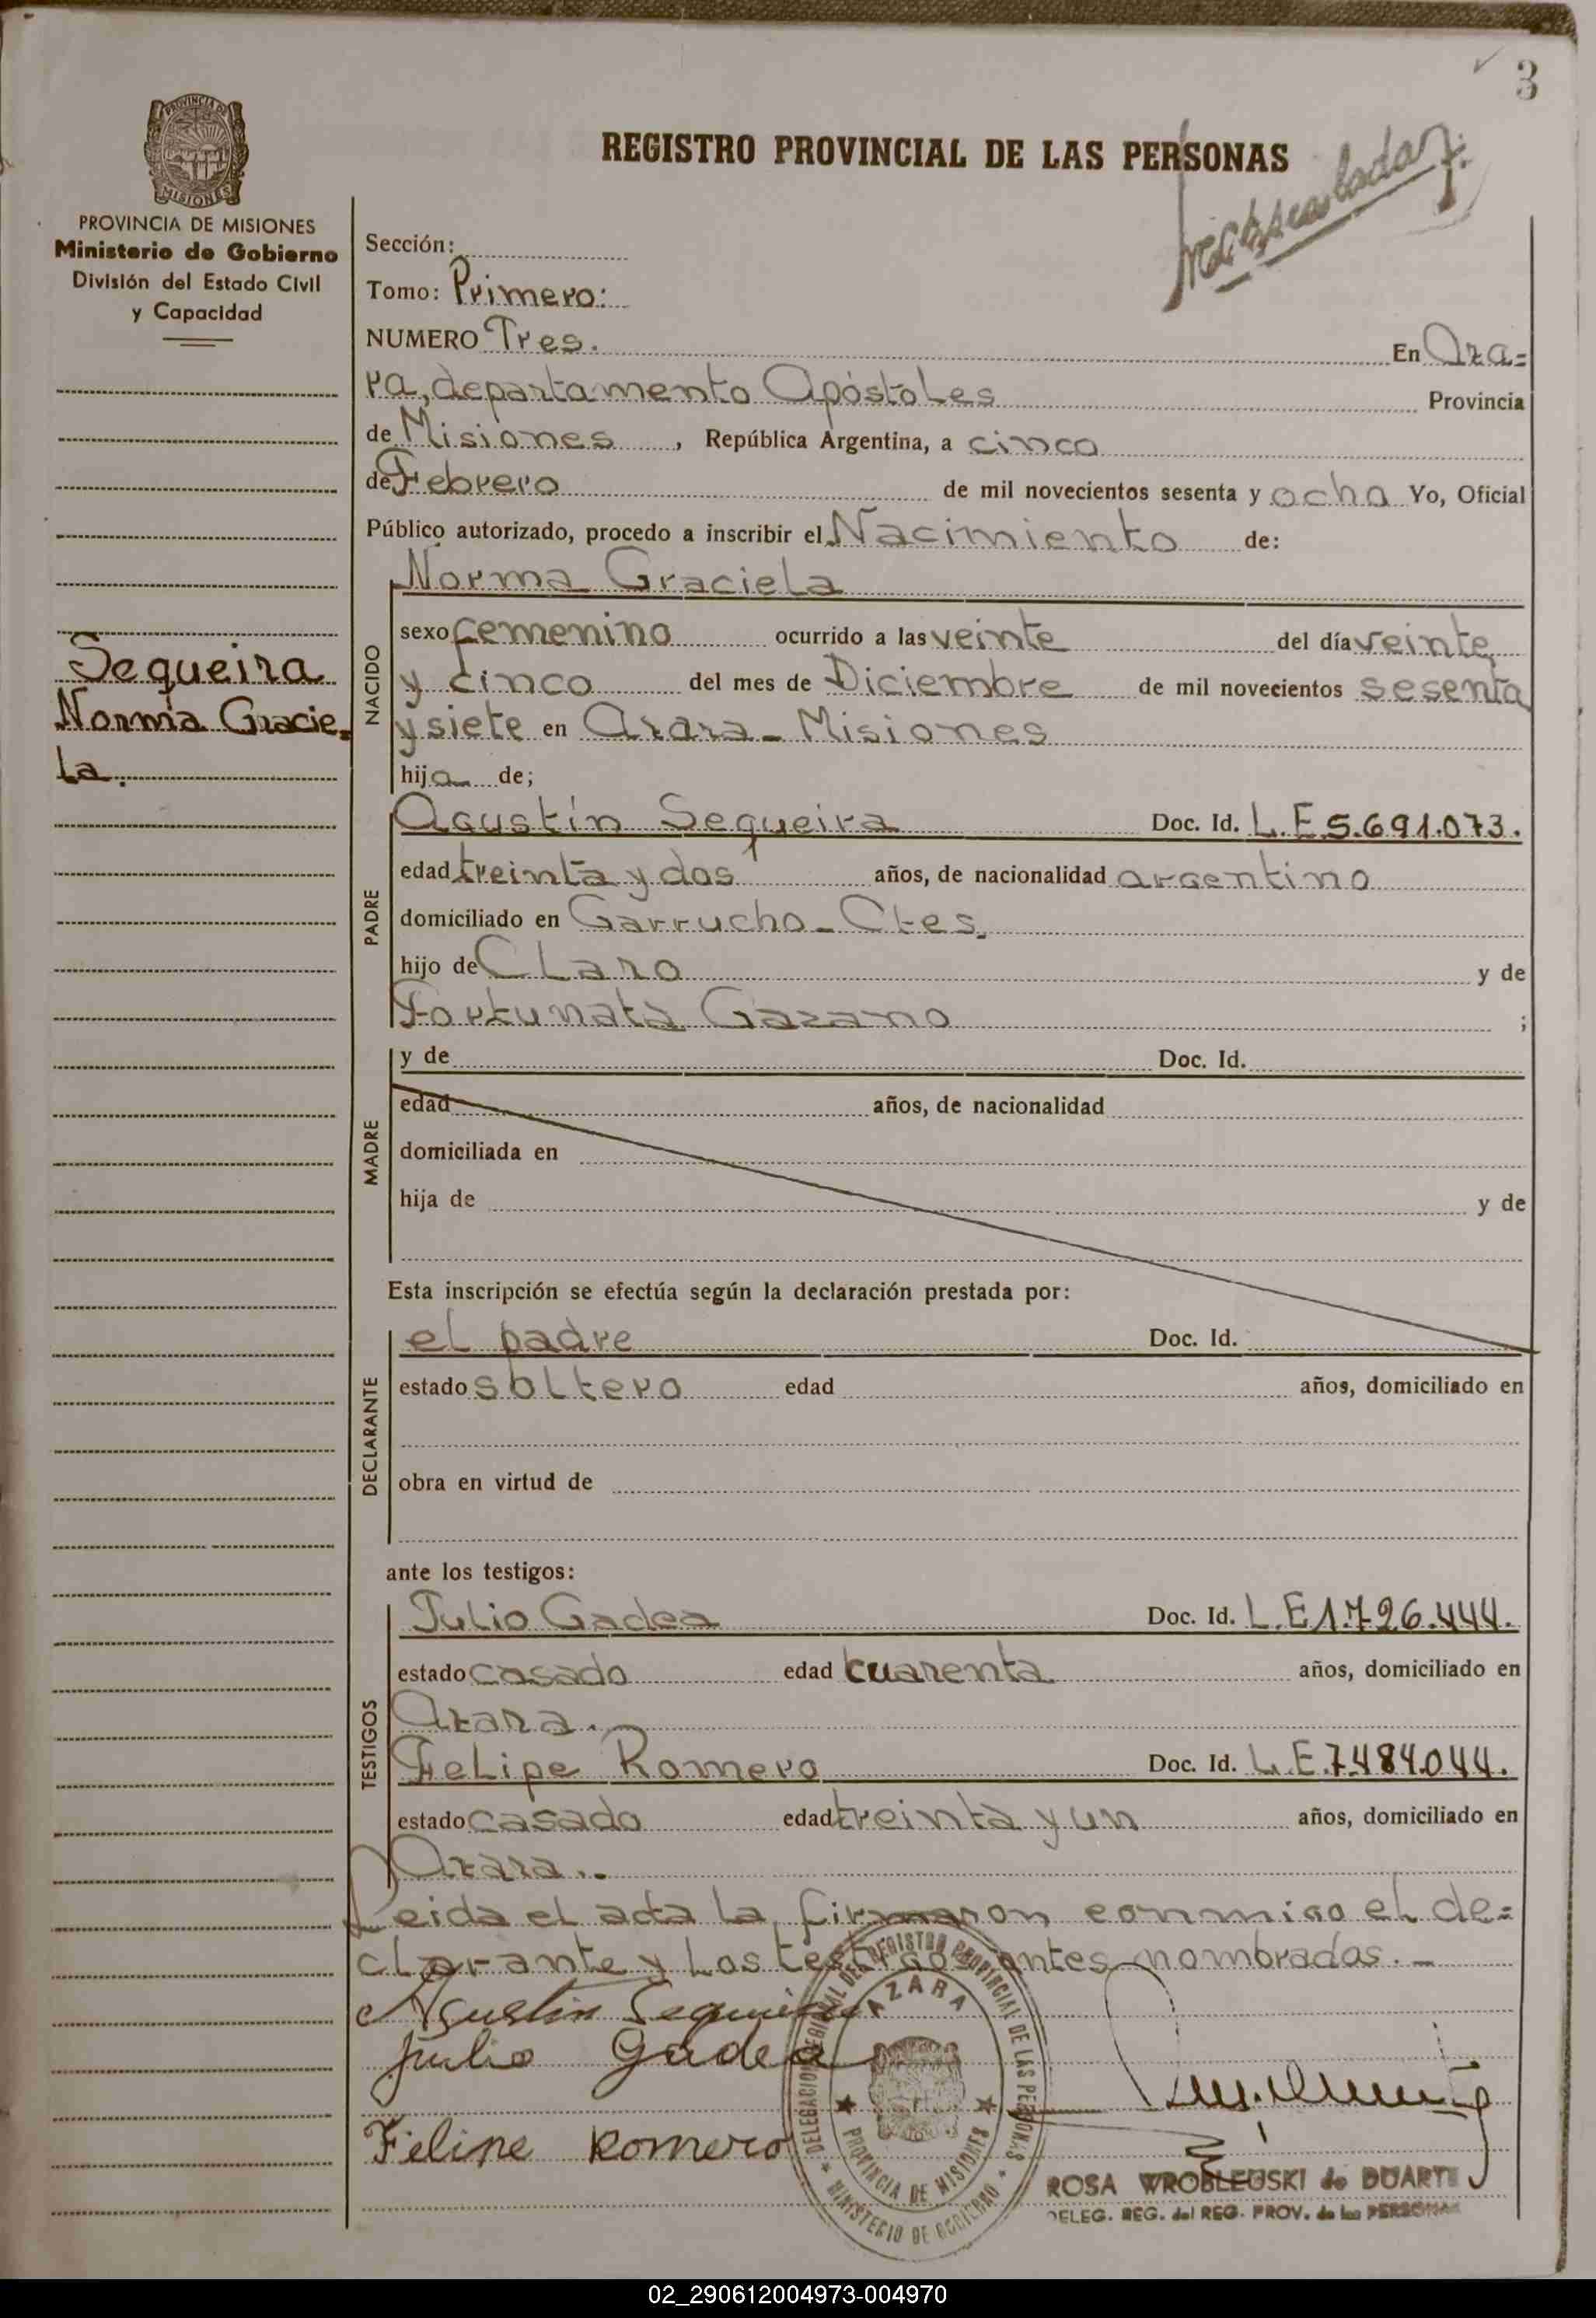 3
PROVINCIA DE MISIONES
Ministerio de Gobierno
División del Estado Civil
y Capacidad
REGISTRO PROVINCIAL DE LAS PERSONAS
Sección:
Tomo: Primero:
NUMERO Tres. En Aza=
ra, departamento Apóstoles Provincia
de Misiones, República Argentina, a cinco
de Febrero de mil novecientos sesenta y ocho Yo, Oficial
Público autorizado, procedo a inscribir el Nacimiento de:
Sequeira
Norma Gracie=
la.
NACIDO
Norma Graciela
sexo femenino ocurrido a las veinte del día veinte
y cinco del mes de Diciembre de mil novecientos sesenta
y siete en Azara - Misiones
hija de;
PADRE
Agustín Sequeira Doc. Id. L.E 5.691.073.
edad treinta y dos años, de nacionalidad argentino
domiciliado en Garrucho - Ctes.
hijo de Claro y de
Fortunata Gazano ;
MADRE
y de Doc. Id.
edad años, de nacionalidad
domiciliada en
hija de y de
Esta inscripción se efectúa según la declaración prestada por:
DECLARANTE
el padre Doc. Id.
estado soltero edad años, domiciliado en
obra en virtud de
ante los testigos:
TESTIGOS
Julio Gadea Doc. Id. L.E 1.726.444.
estado casado edad cuarenta años, domiciliado en
Azara.
Felipe Romero Doc. Id. L.E.7.484.044.
estado casado edad treinta y un años, domiciliado en
Azara..
Leida el acta la firmaron conmigo el de=
clarante y los testigos antes nombrados. -
Agustin Sequeira
Julio Gadea
Felipe Romero
DELEGACION REGIONAL DEL REGISTRO PROVINCIAL DE LAS PERSONAS
AZARA
PROVINCIA DE MISIONES
MINISTERIO DE GOBIERNO
ROSA WROBLEUSKI de DUARTE
DELEG. REG. del REG. PROV. de las PERSONAS
02_290612004973-004970